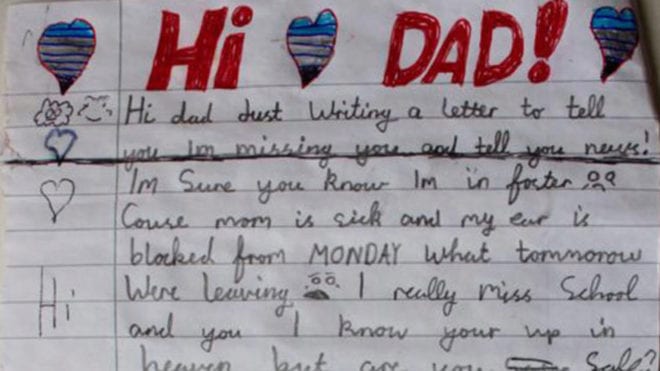 Hi DAD!
Hi dad Just Writing a letter to tell
you Im missing you and tell you news!
Im Sure you know Im in foster
Couse mom is sick and my ear is
blocked from MONDAY what tommorow
Were leaving I really miss School
and you I know your up in
Hi
heaven but are you Safe?